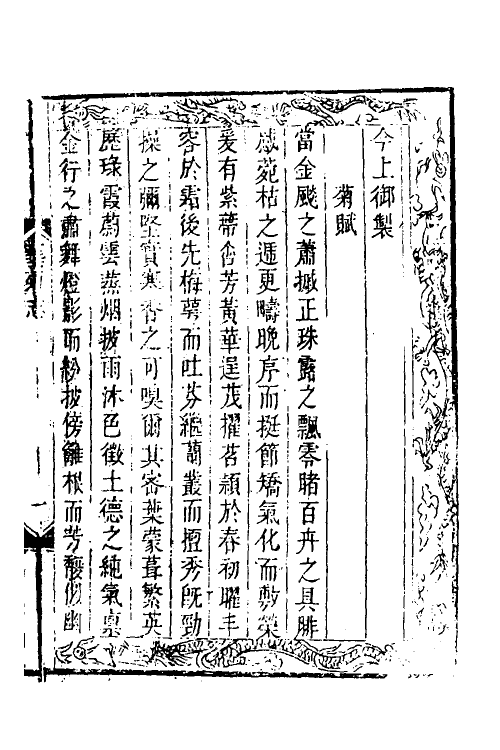 今上御製
菊賦
當金颷之蕭摵正珠露之飄零睹百卉之具腓
感菀枯之遞更疇晚序而挺節矯氣化而敷榮
爰有紫蔕含芳黃華逞茂擢苕穎於春初耀丰
容於霜後先梅萼而吐芬繼蘭叢而擅秀旣勁
操之彌堅實寒香之可嗅爾其密葉蒙葺繁英
歷琭霞蔚雲蒸烟披雨沐色徵土德之純氣稟
金行之肅舞燈影而紛披傍籬根而芳馥似幽